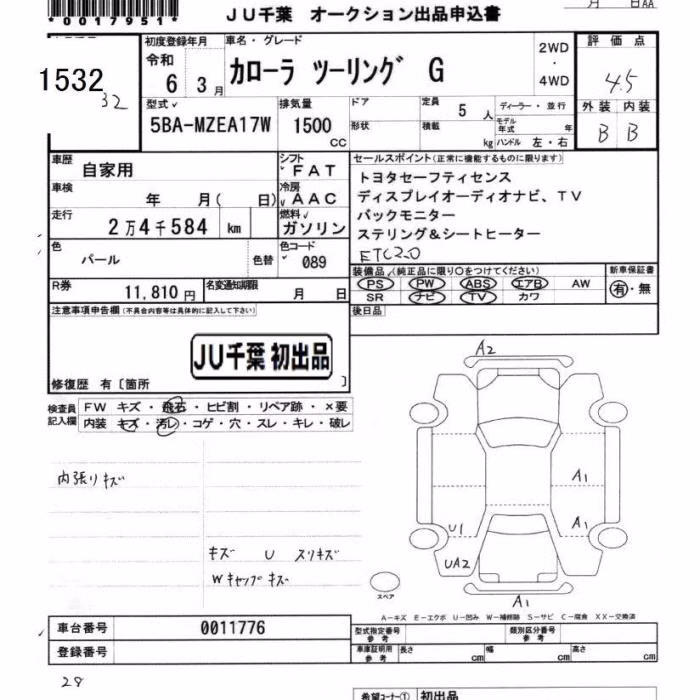 *0017951*
JU千葉 オークション出品申込書
月 日AA
1532
32
初度登録年月
令和
6 3月
車名・グレード
カローラ ツーリング G
2WD
・
4WD
評価点
4.5
外装 内装
B B
型式
5BA-MZEA17W
排気量
1500
CC
ドア
形状
定員 5人
積載 kg
ディーラー・並行
モデル年式 年
ハンドル 左・右
車歴 自家用
シフト FAT
車検 年 月( 日)
冷房 AAC
走行 2万4千584 km
燃料 ガソリン
色 パール 色替
色コード 089
R券 11,810円
名変通知期限 月 日
セールスポイント(正常に機能するものに限ります)
トヨタセーフティセンス
ディスプレイオーディオナビ、TV
バックモニター
ステリング&シートヒーター
ETC2.0
装備品(純正品に限り○をつけてください)
PS PW ABS エアB AW
SR ナビ TV カワ
新車保証書
有・無
後日品
注意事項申告欄(不具合内容等は具体的に記入して下さい)
JU千葉 初出品
修復歴 有〔箇所 〕
検査員記入欄
FW キズ・飛石・ヒビ割・リペア跡・×要
内装 キズ・汚レ・コゲ・穴・スレ・キレ・破レ
内張りキズ
キズ U スリキズ
Wキャップキズ
A2
A1
A1
U1
UA2
A1
スペア
A-キズ E-エクボ U-凹み W-補修跡 S-サビ C-腐食 XX-交換済
車台番号 0011776
登録番号
型式指定番号 参考
類別区分番号 参考
車庫証明用 参考
長さ cm 幅 cm 高さ cm
28
希望コーナー① 初出品